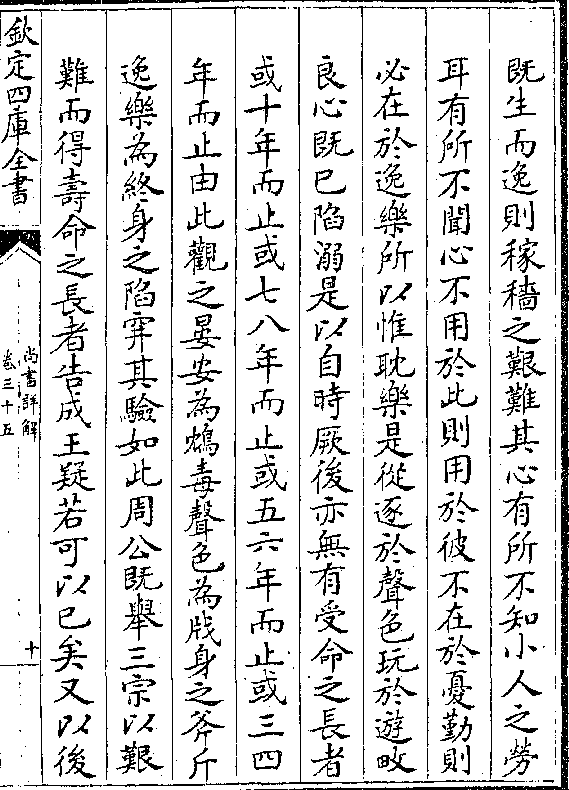 既生而逸則稼穡之艱難其心有所不知小人之勞
耳有所不聞心不用於此則用於彼不在於憂勤則
必在於逸樂所以惟耽樂是從逐於聲色玩於遊畋
良心既已陷溺是以自時厥後亦無有受命之長者
或十年而止或七八年而止或五六年而止或三四
年而止由此觀之晏安為鴆毒聲色為戕身之斧斤
逸樂為終身之陷穽其驗如此周公既舉三宗以艱
難而得壽命之長者告成王疑若可以已矣又以後
欽定四庫全書
尚書詳解
卷三十五
十